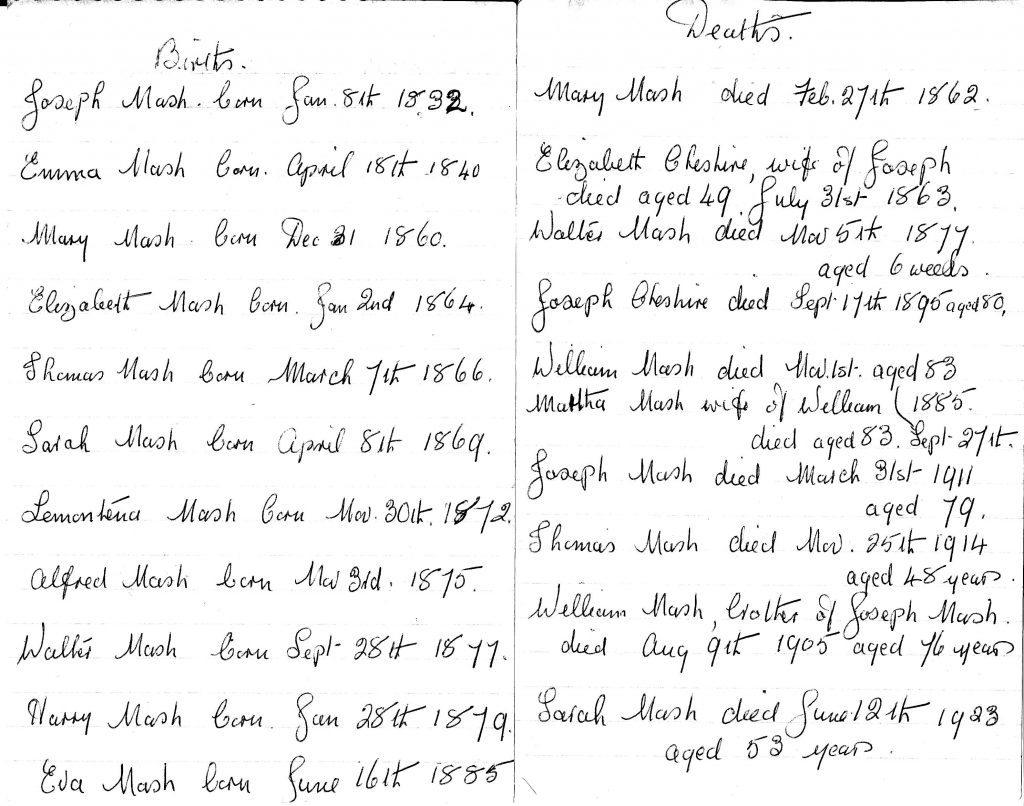 Births.
Joseph Mash. born Jan. 8th 1832.
Emma Mash born. April 18th 1840
Mary Mash. born Dec 31 1860.
Elizabeth Mash born. Jan 2nd 1864.
Thomas Mash born March 7th 1866.
Sarah Mash born April 8th 1869.
Mash born Nov. 30th. 1872.
Alfred Mash born Nov 3rd. 1875.
Walter Mash born Sept 28th 1877.
Harry Mash born. Jan 28th 1879.
Eva Mash born June 16th 1885
Deaths.
Mary Mash died Feb. 27th 1862.
Elizabeth Cheshire, wife of Joseph
died aged 49 July 31st 1863.
Walter Mash died Nov 5th 1877.
aged 6 weeks.
Joseph Cheshire died Sept 17th 1895 aged 80,
William Mash died Nov. 1st. aged 83
Martha Mash wife of William ( 1885.
died aged 83. Sept 27th.
Joseph Mash died March 31st 1911
aged 79.
Thomas Mash died Nov. 25th 1914
aged 48 years.
William Mash, brother of Joseph Mash.
died Aug 9th 1905 aged 76 years
Sarah Mash died June 12th 1923
aged 53 years.